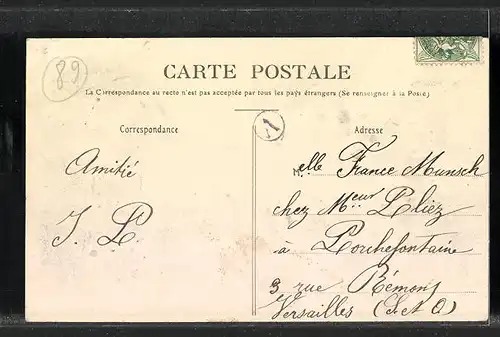 89
CARTE POSTALE
La Correspondance au recto n'est pas acceptée par tous les pays étrangers (Se renseigner à la Poste)
Correspondance
Adresse
Amitié
J. P.
Melle France Munsch
chez Meur Pliez
à Porchefontaine
3 rue Rémont
Versailles (S. et O)